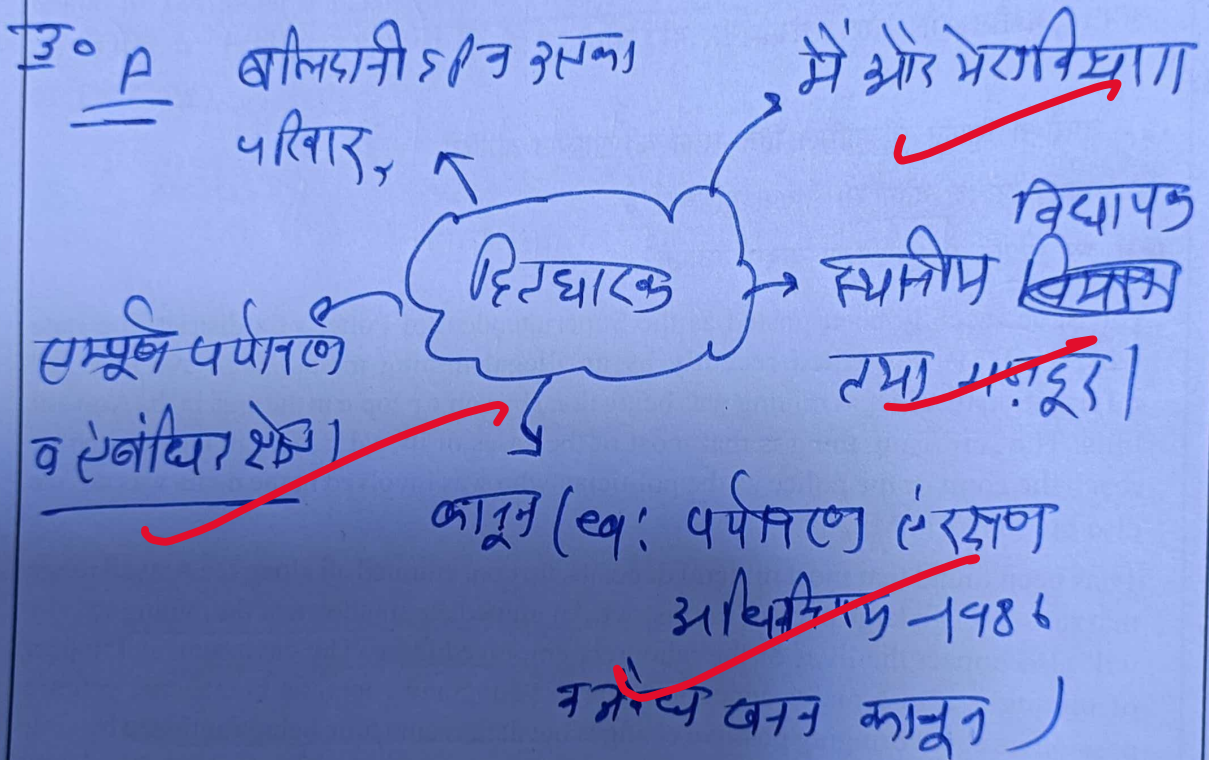 उ०
A बलिदानी DFO व उसका
परिवार,
मैं और मेरा विभाग
हितधारक
विधायक
स्थानीय
तथा मज़दूर।
सम्पूर्ण पर्यावरण
व संबंधित क्षेत्र।
कानून (eg: पर्यावरण संरक्षण
अधिनियम -1986
व अवैध खनन कानून )